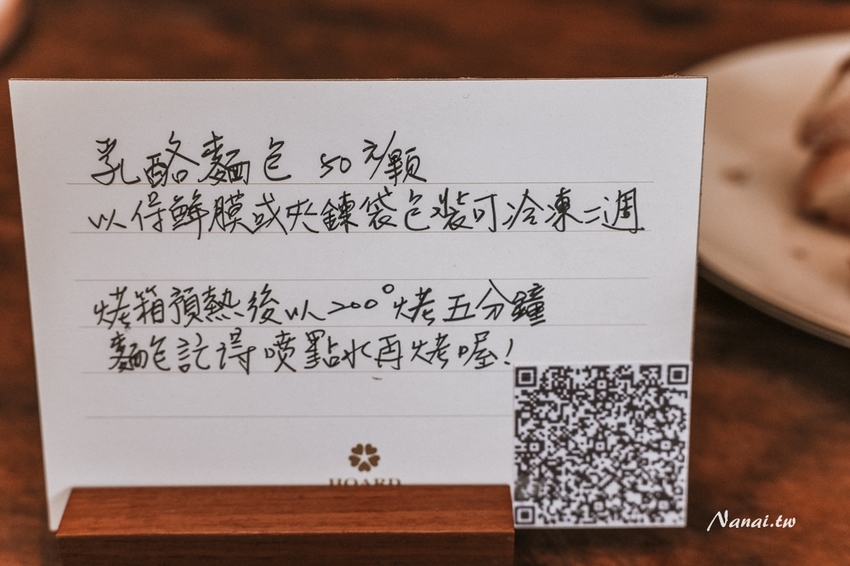 乳酪麵包 50元/顆
以保鮮膜或夾鍊袋包裝可冷凍二週
烤箱預熱後以200°烤五分鐘
麵包記得噴點水再烤喔!
HOARD
Nanai.tw